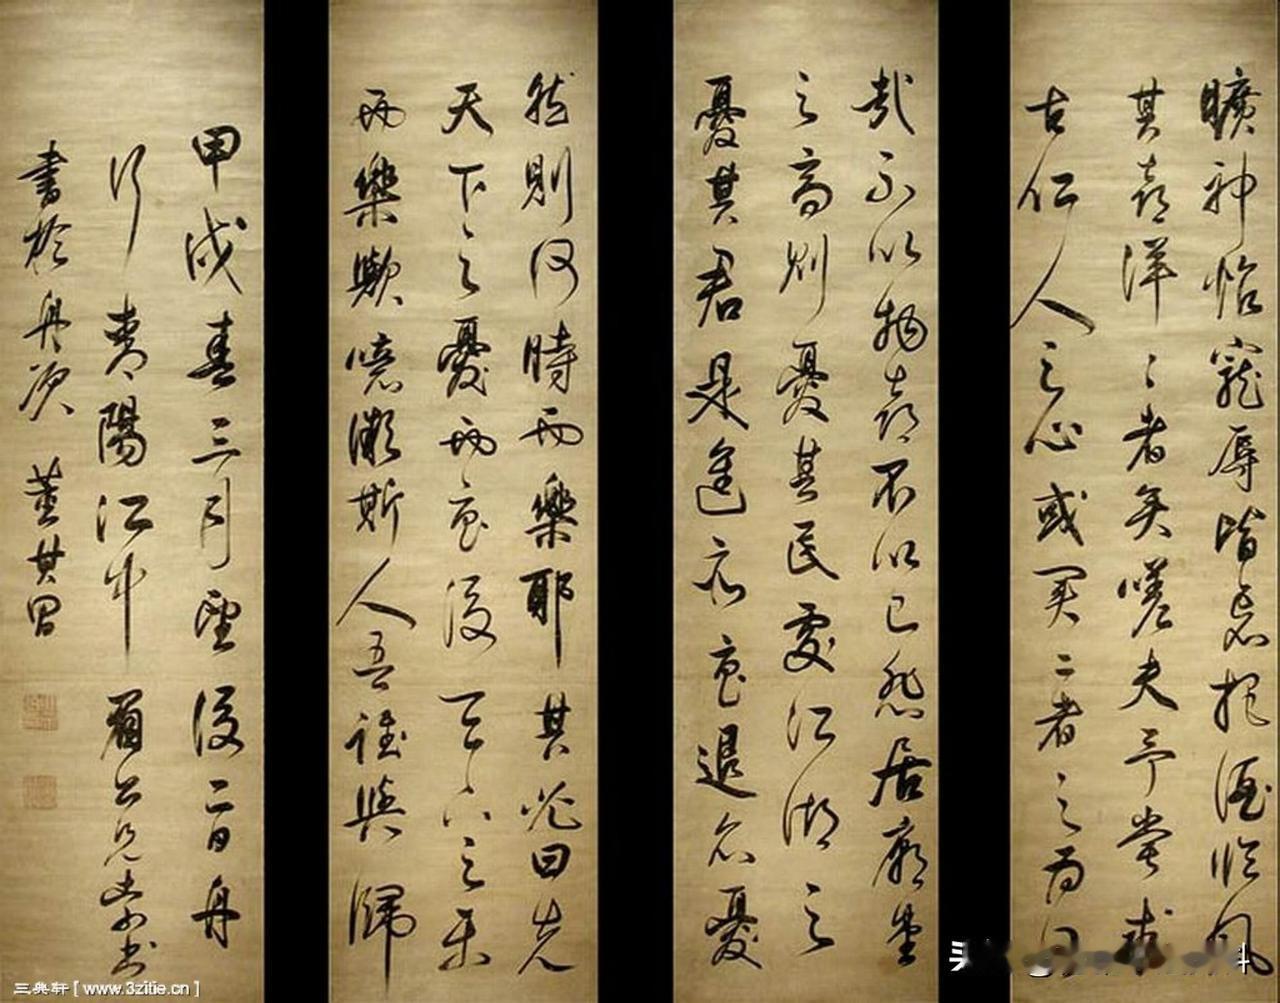 曠神怡寵辱皆忘把酒臨風
其喜洋〻者矣嗟夫予嘗求
古仁人之心或異二者之為何
哉不以物喜不以己悲居廟堂
之高則憂其民處江湖之
憂其君是進亦憂退亦憂
然則何時而樂耶其必曰先
天下之憂而憂後天下之樂
而樂歟噫微斯人吾誰與歸
甲戌春三月望後二日舟
行陽江中眉公兄索書
書於舟次 董其昌
三典轩[www.3zitie.cn]